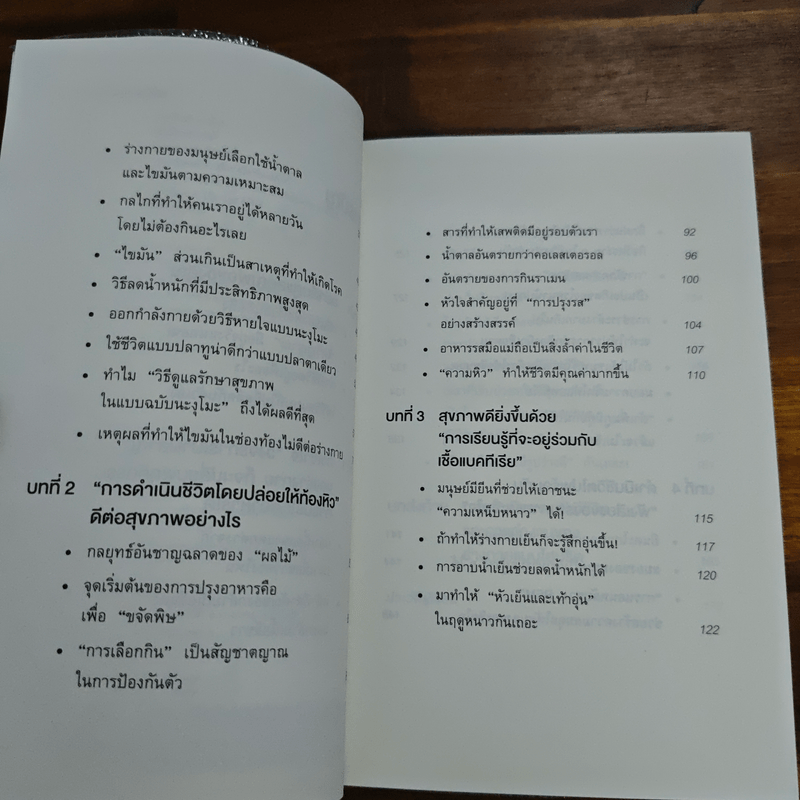 • ร่างกายของมนุษย์เลือกใช้น้ำตาล
และไขมันตามความเหมาะสม
• กลไกที่ทำให้คนเราอยู่ได้หลายวัน
โดยไม่ต้องกินอะไรเลย
• “ไขมัน” ส่วนเกินเป็นสาเหตุที่ทำให้เกิดโรค
• วิธีลดน้ำหนักที่มีประสิทธิภาพสูงสุด
• ออกกำลังกายด้วยวิธีหายใจแบบนะงุโมะ
• ใช้ชีวิตแบบปลาทูน่าดีกว่าแบบปลาตาเดียว
• ทำไม “วิธีดูแลรักษาสุขภาพ
ในแบบฉบับนะงุโมะ” ถึงได้ผลดีที่สุด
• เหตุผลที่ทำให้ไขมันในช่องท้องไม่ดีต่อร่างกาย
บทที่ 2 “การดำเนินชีวิตโดยปล่อยให้ท้องหิว”
ดีต่อสุขภาพอย่างไร
• กลยุทธ์อันชาญฉลาดของ “ผลไม้”
• จุดเริ่มต้นของการปรุงอาหารคือ
เพื่อ “ขจัดพิษ”
• “การเลือกกิน” เป็นสัญชาตญาณ
ในการป้องกันตัว
• สารที่ทำให้เสพติดมีอยู่รอบตัวเรา 92
• น้ำตาลอันตรายกว่าคอเลสเตอรอล 96
• อันตรายของการกินราเมน 100
• หัวใจสำคัญอยู่ที่ “การปรุงรส”
อย่างสร้างสรรค์ 104
• อาหารรสมือแม่ถือเป็นสิ่งล้ำค่าในชีวิต 107
• “ความหิว” ทำให้ชีวิตมีคุณค่ามากขึ้น 110
บทที่ 3 สุขภาพดียิ่งขึ้นด้วย
“การเรียนรู้ที่จะอยู่ร่วมกับ
เชื้อแบคทีเรีย”
• มนุษย์มียีนที่ช่วยให้เอาชนะ
“ความเหน็บหนาว” ได้! 115
• ถ้าทำให้ร่างกายเย็นก็จะรู้สึกอุ่นขึ้น! 117
• การอาบน้ำเย็นช่วยลดน้ำหนักได้ 120
• มาทำให้ “หัวเย็นและเท้าอุ่น”
ในฤดูหนาวกันเถอะ 122